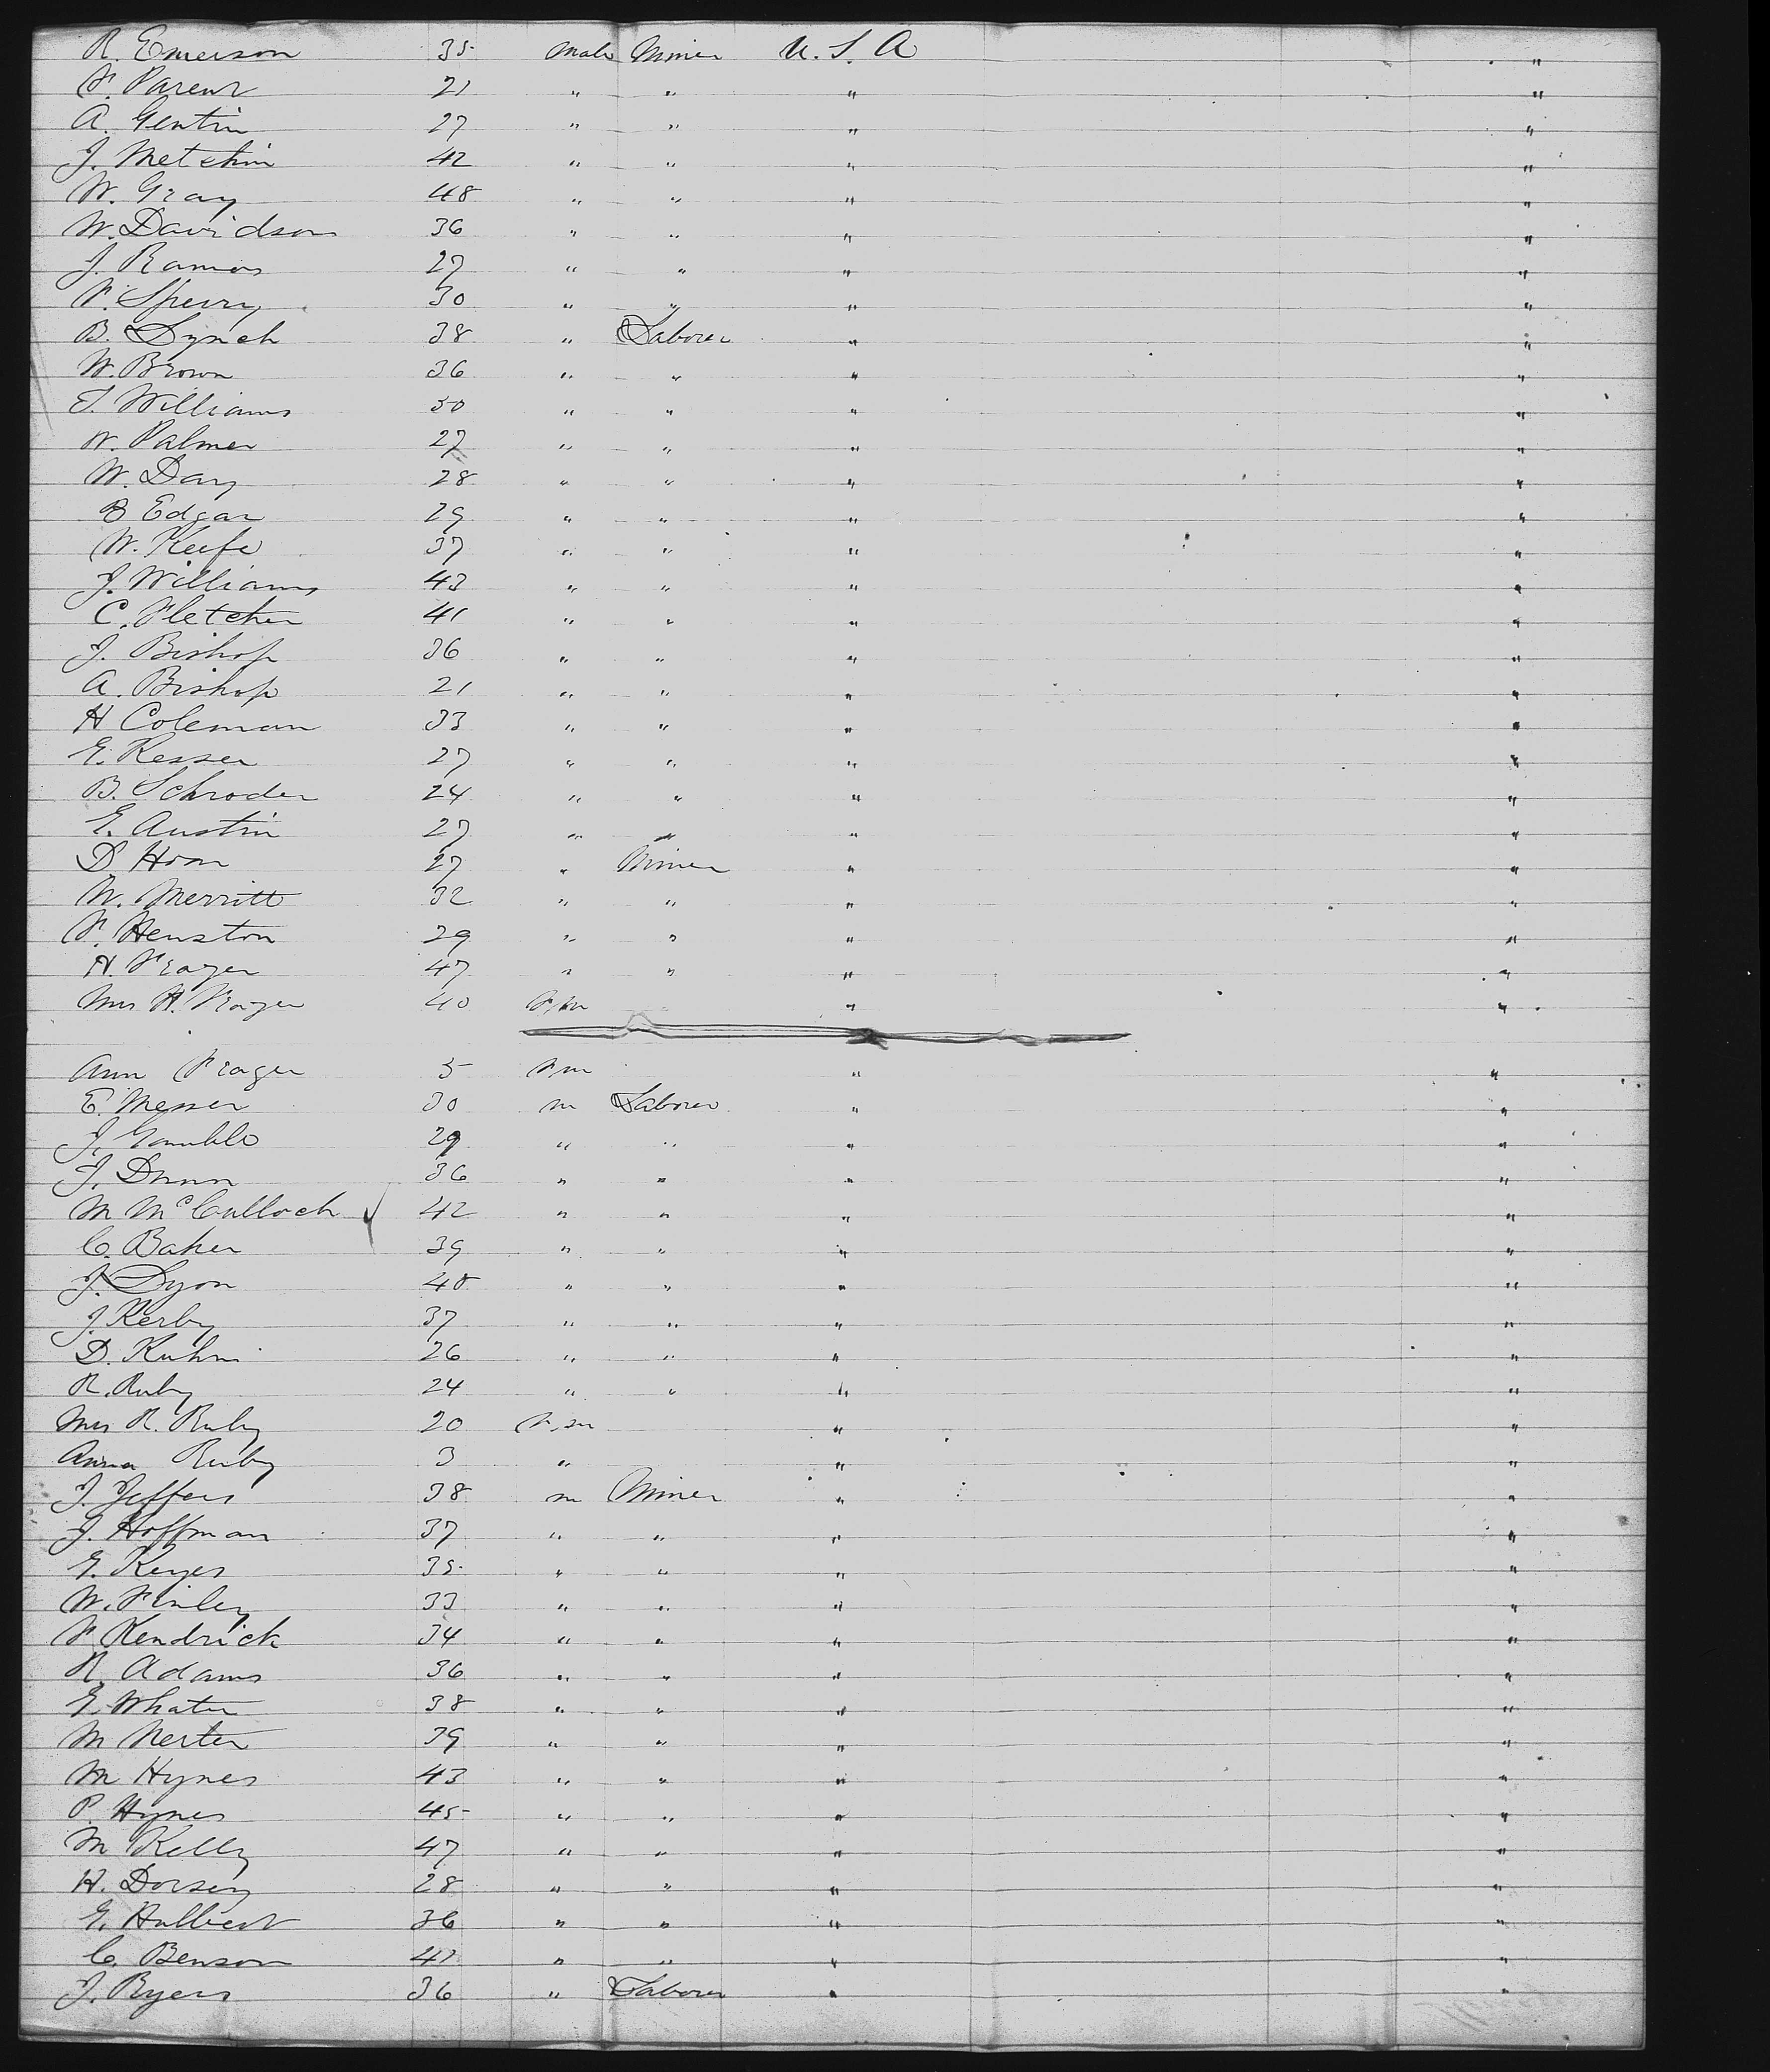 R. Emerson 35 Male Miner U.S.A "
F. Parent 21 " " " "
A. Gentin 27 " " " "
J. Metchin 42 " " " "
W. Gray 48 " " " "
W. Davidson 36 " " " "
J. Ramos 27 " " " "
F. Sperry 30 " " " "
B. Lynch 38 " Laborer " "
W. Brown 36 " " " "
T. Williams 30 " " " "
W. Palmer 27 " " " "
W. Day 28 " " " "
B Edgar 29 " " " "
W. Keefe 37 " " " "
J. Williams 43 " " " "
C. Fletcher 41 " " " "
J. Bishop 36 " " " "
A. Bishop 21 " " " "
H Coleman 33 " " " "
E. Resser 27 " " " "
B. Schroder 24 " " " "
E. Austin 27 " " " "
D. Horn 27 " Miner " "
W. Merritt 32 " " " "
F. Henston 29 " " " "
H. Frazer 47 " " " "
Mrs H. Frazer 40 Fm " "
Ann Frazer 5 Fm " "
E. Messer 30 m Laborer " "
J. Gamble 29 " " " "
J. Dunn 36 " " " "
M McCulloch 42 " " " "
C. Baker 39 " " " "
J. Lyon 48 " " " "
J. Kerby 37 " " " "
D. Kuhn 26 " " " "
R. Ruby 24 " " " "
Mrs R. Ruby 20 F.m " "
Anna Ruby 3 " " "
J. Jeffers 38 m Miner " "
J. Hoffman 37 " " " "
E. Keyes 35 " " " "
W. Finley 33 " " " "
F Kendrick 34 " " " "
R. Adams 36 " " " "
E. Whater 38 " " " "
M Nerter 39 " " " "
M Hynes 43 " " " "
P. Hynes 45 " " " "
M Kelly 47 " " " "
H. Dorsey 28 " " " "
E. Hulbert 36 " " " "
C. Benson 47 " " " "
J. Byers 36 " Laborer " "